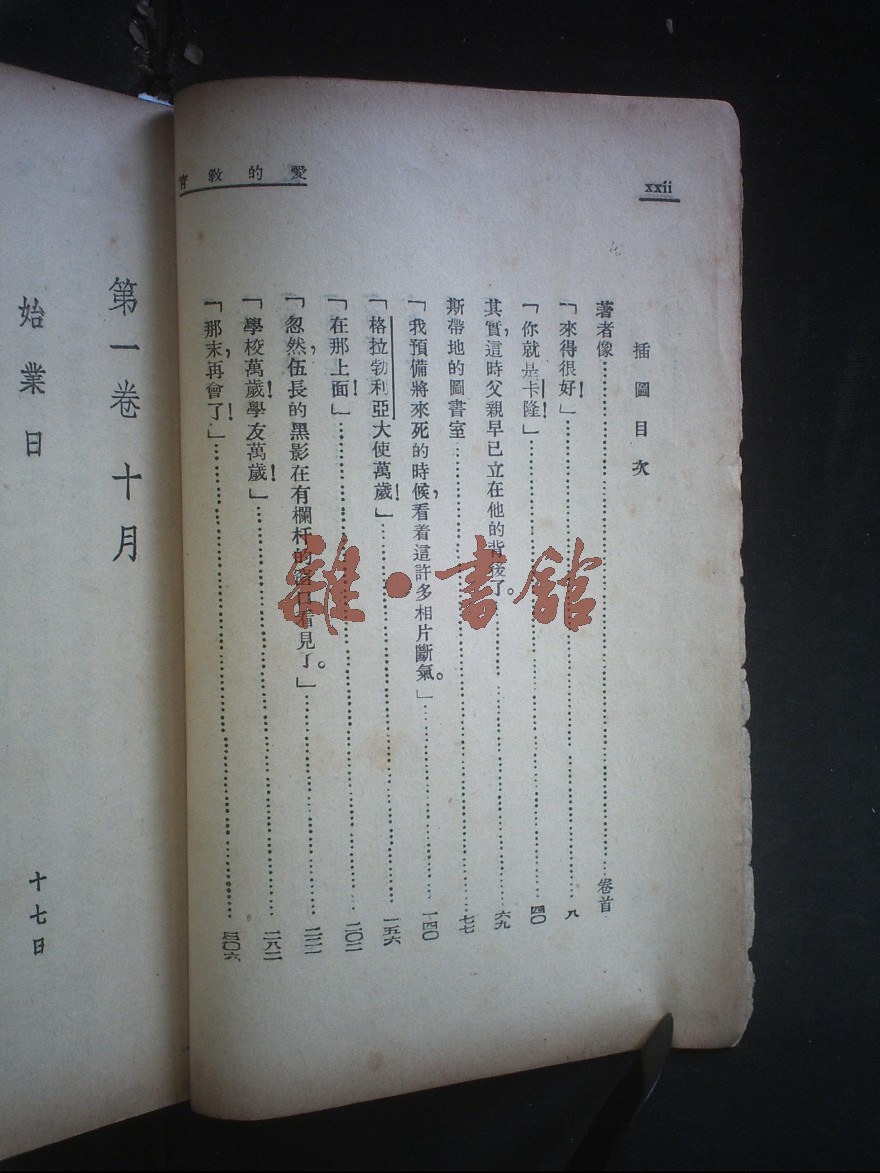 xxii
愛的教育
插圖目次
著者像……卷首
「來得很好!」……八
「你就是卡隆!」……四〇
其實,這時父親早已立在他的背後了。……六九
斯帶地的圖書室……七七
「我預備將來死的時候,看着這許多相片斷氣。」……一四〇
「格拉勃利亞大使萬歲!」……一五六
「在那上面!」……二〇二
「忽然,伍長的黑影在有欄杆的窗口看見了。」……二二二
「學校萬歲!學友萬歲!」……二八二
「那末,再會了!」……四〇六
第一卷 十月
始業日 十七日
雜·書館